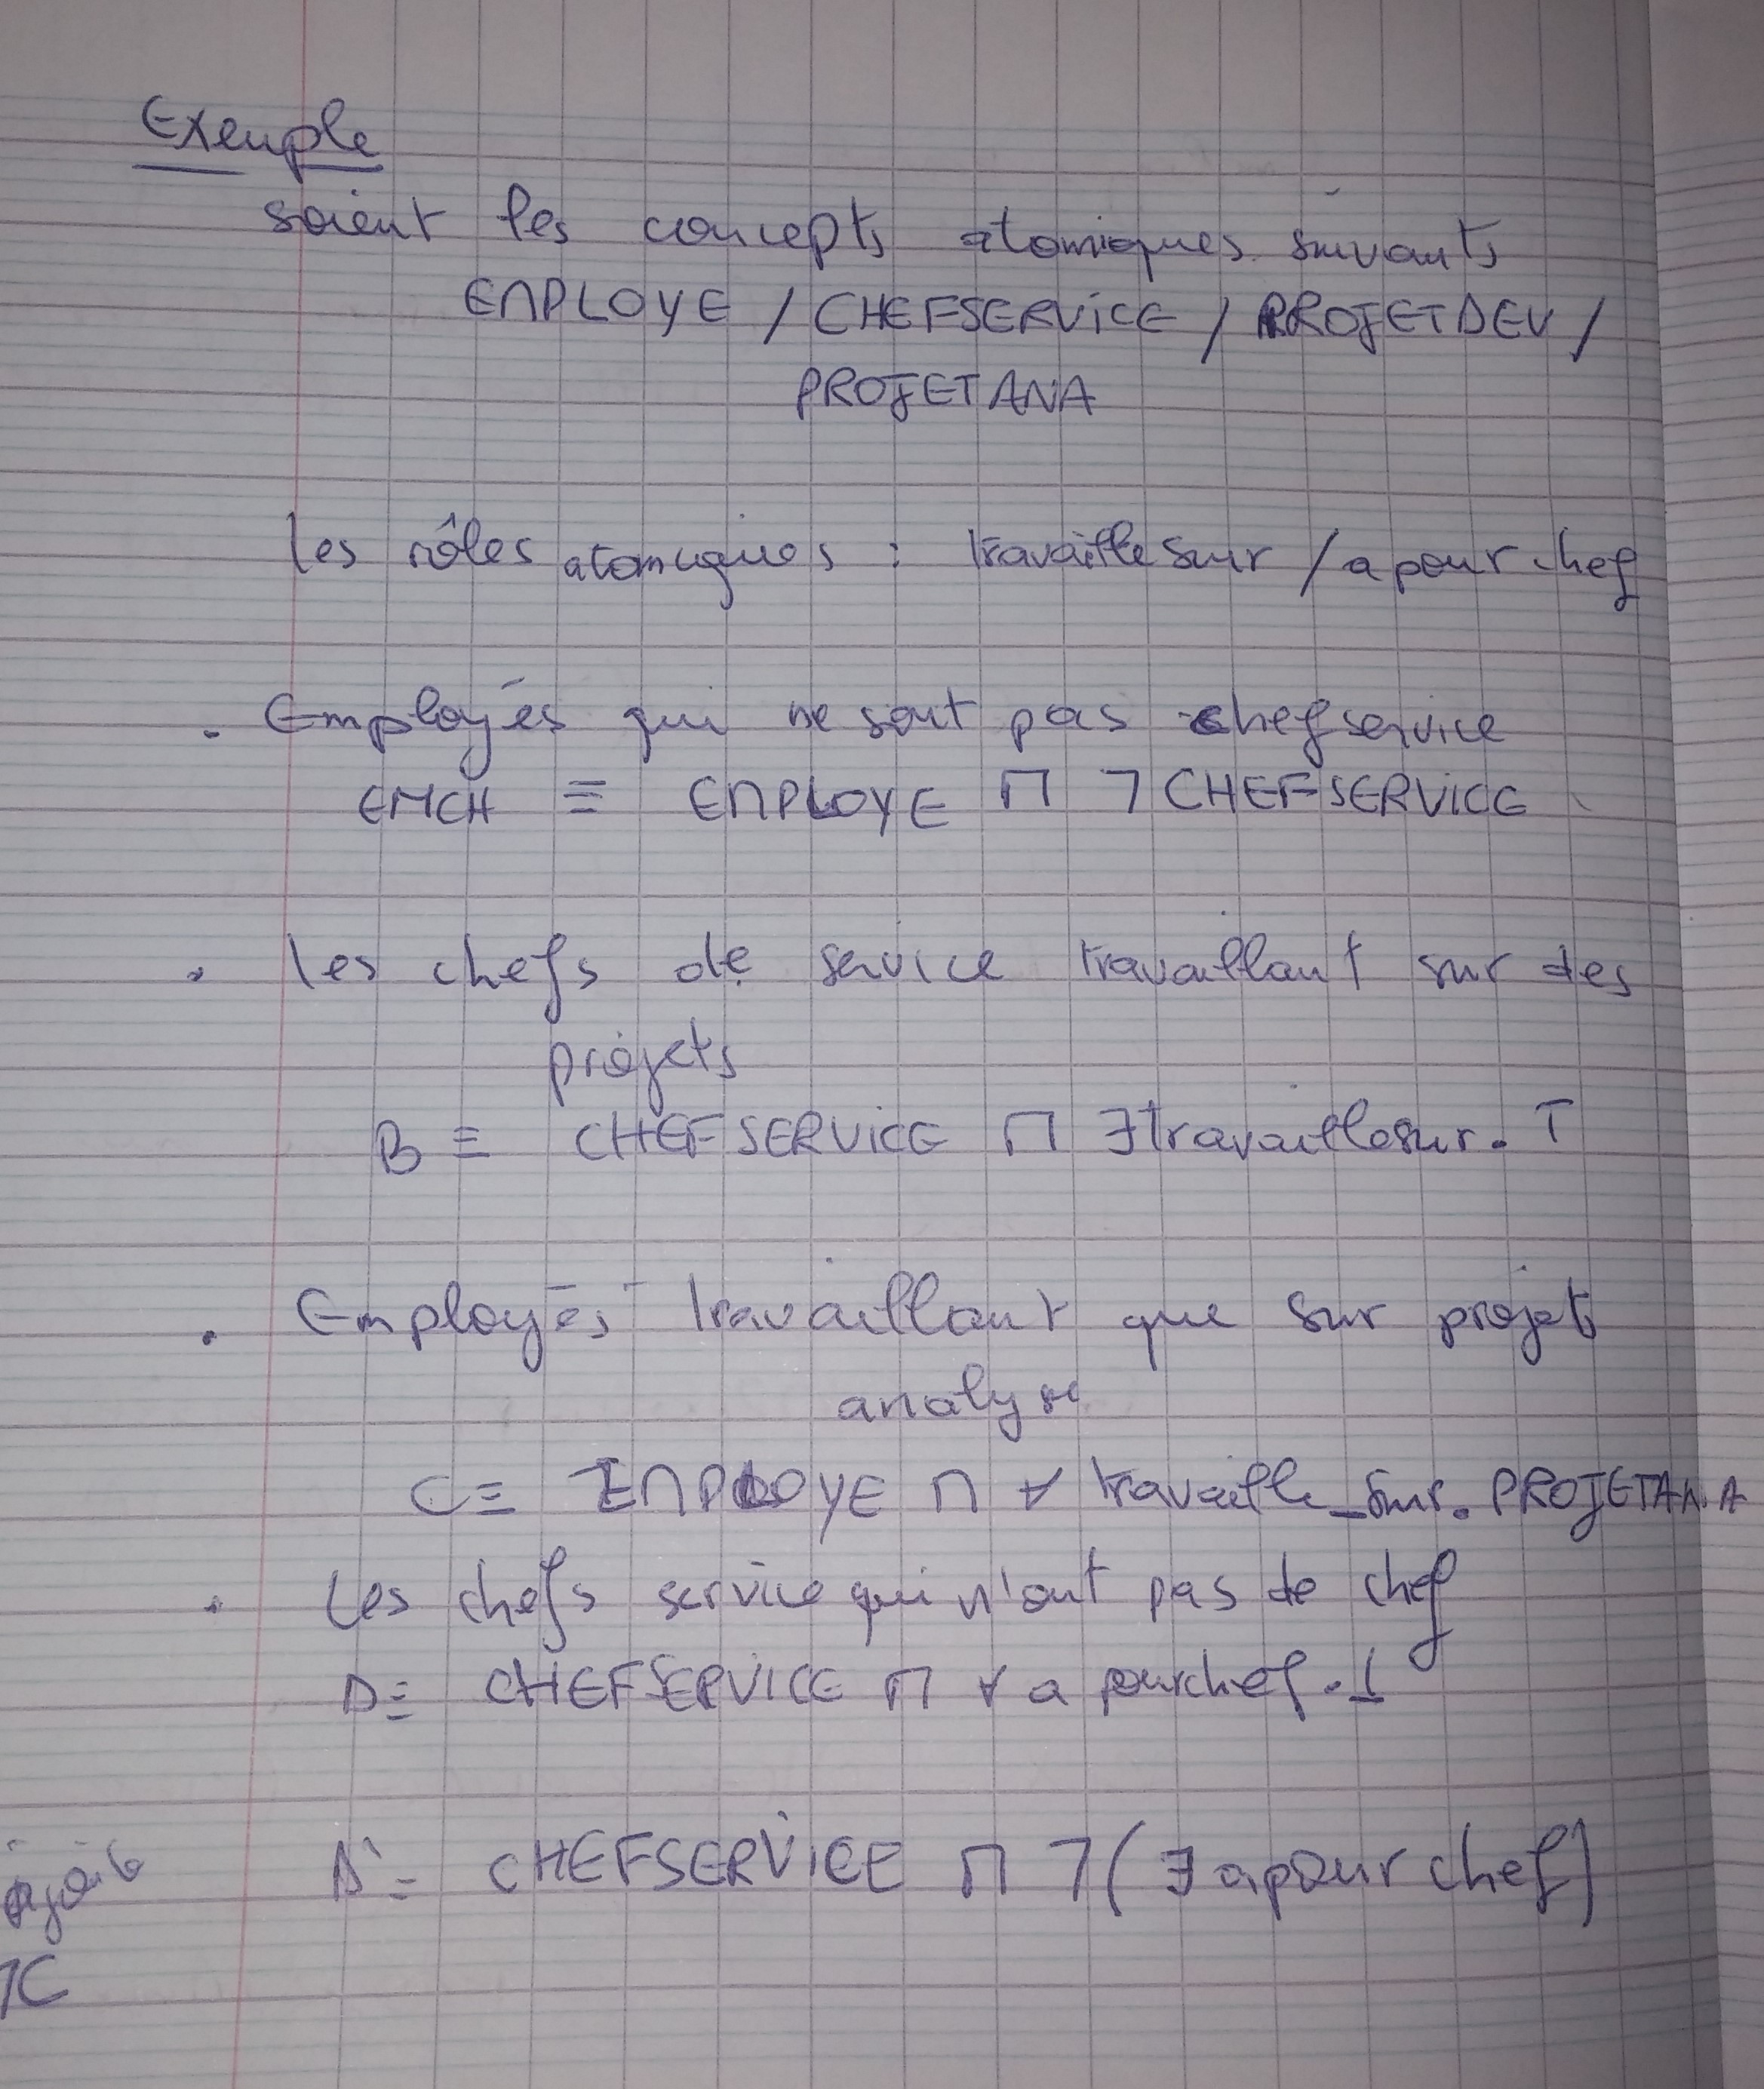 Exemple
soient les concepts atomiques suivants
EMPLOYE / CHEFSERVICE / PROJETDEV /
PROJETANA
les rôles atomiques : travaillesur / apourchef
. Employés qui ne sont pas chefservice
EMCH ≡ EMPLOYE ⊓ ¬CHEFSERVICE
. les chefs de service travaillant sur des
projets
B ≡ CHEFSERVICE ⊓ ∃travaillesur.⊤
. Employés travaillant que sur projets
analyse
C ≡ EMPLOYE ⊓ ∀ travaille_sur.PROJETANA
. Les chefs service qui n'ont pas de chef
D ≡ CHEFSERVICE ⊓ ∀ a pourchef.⊥
D' ≡ CHEFSERVICE ⊓ ¬(∃ apourchef)
¬C